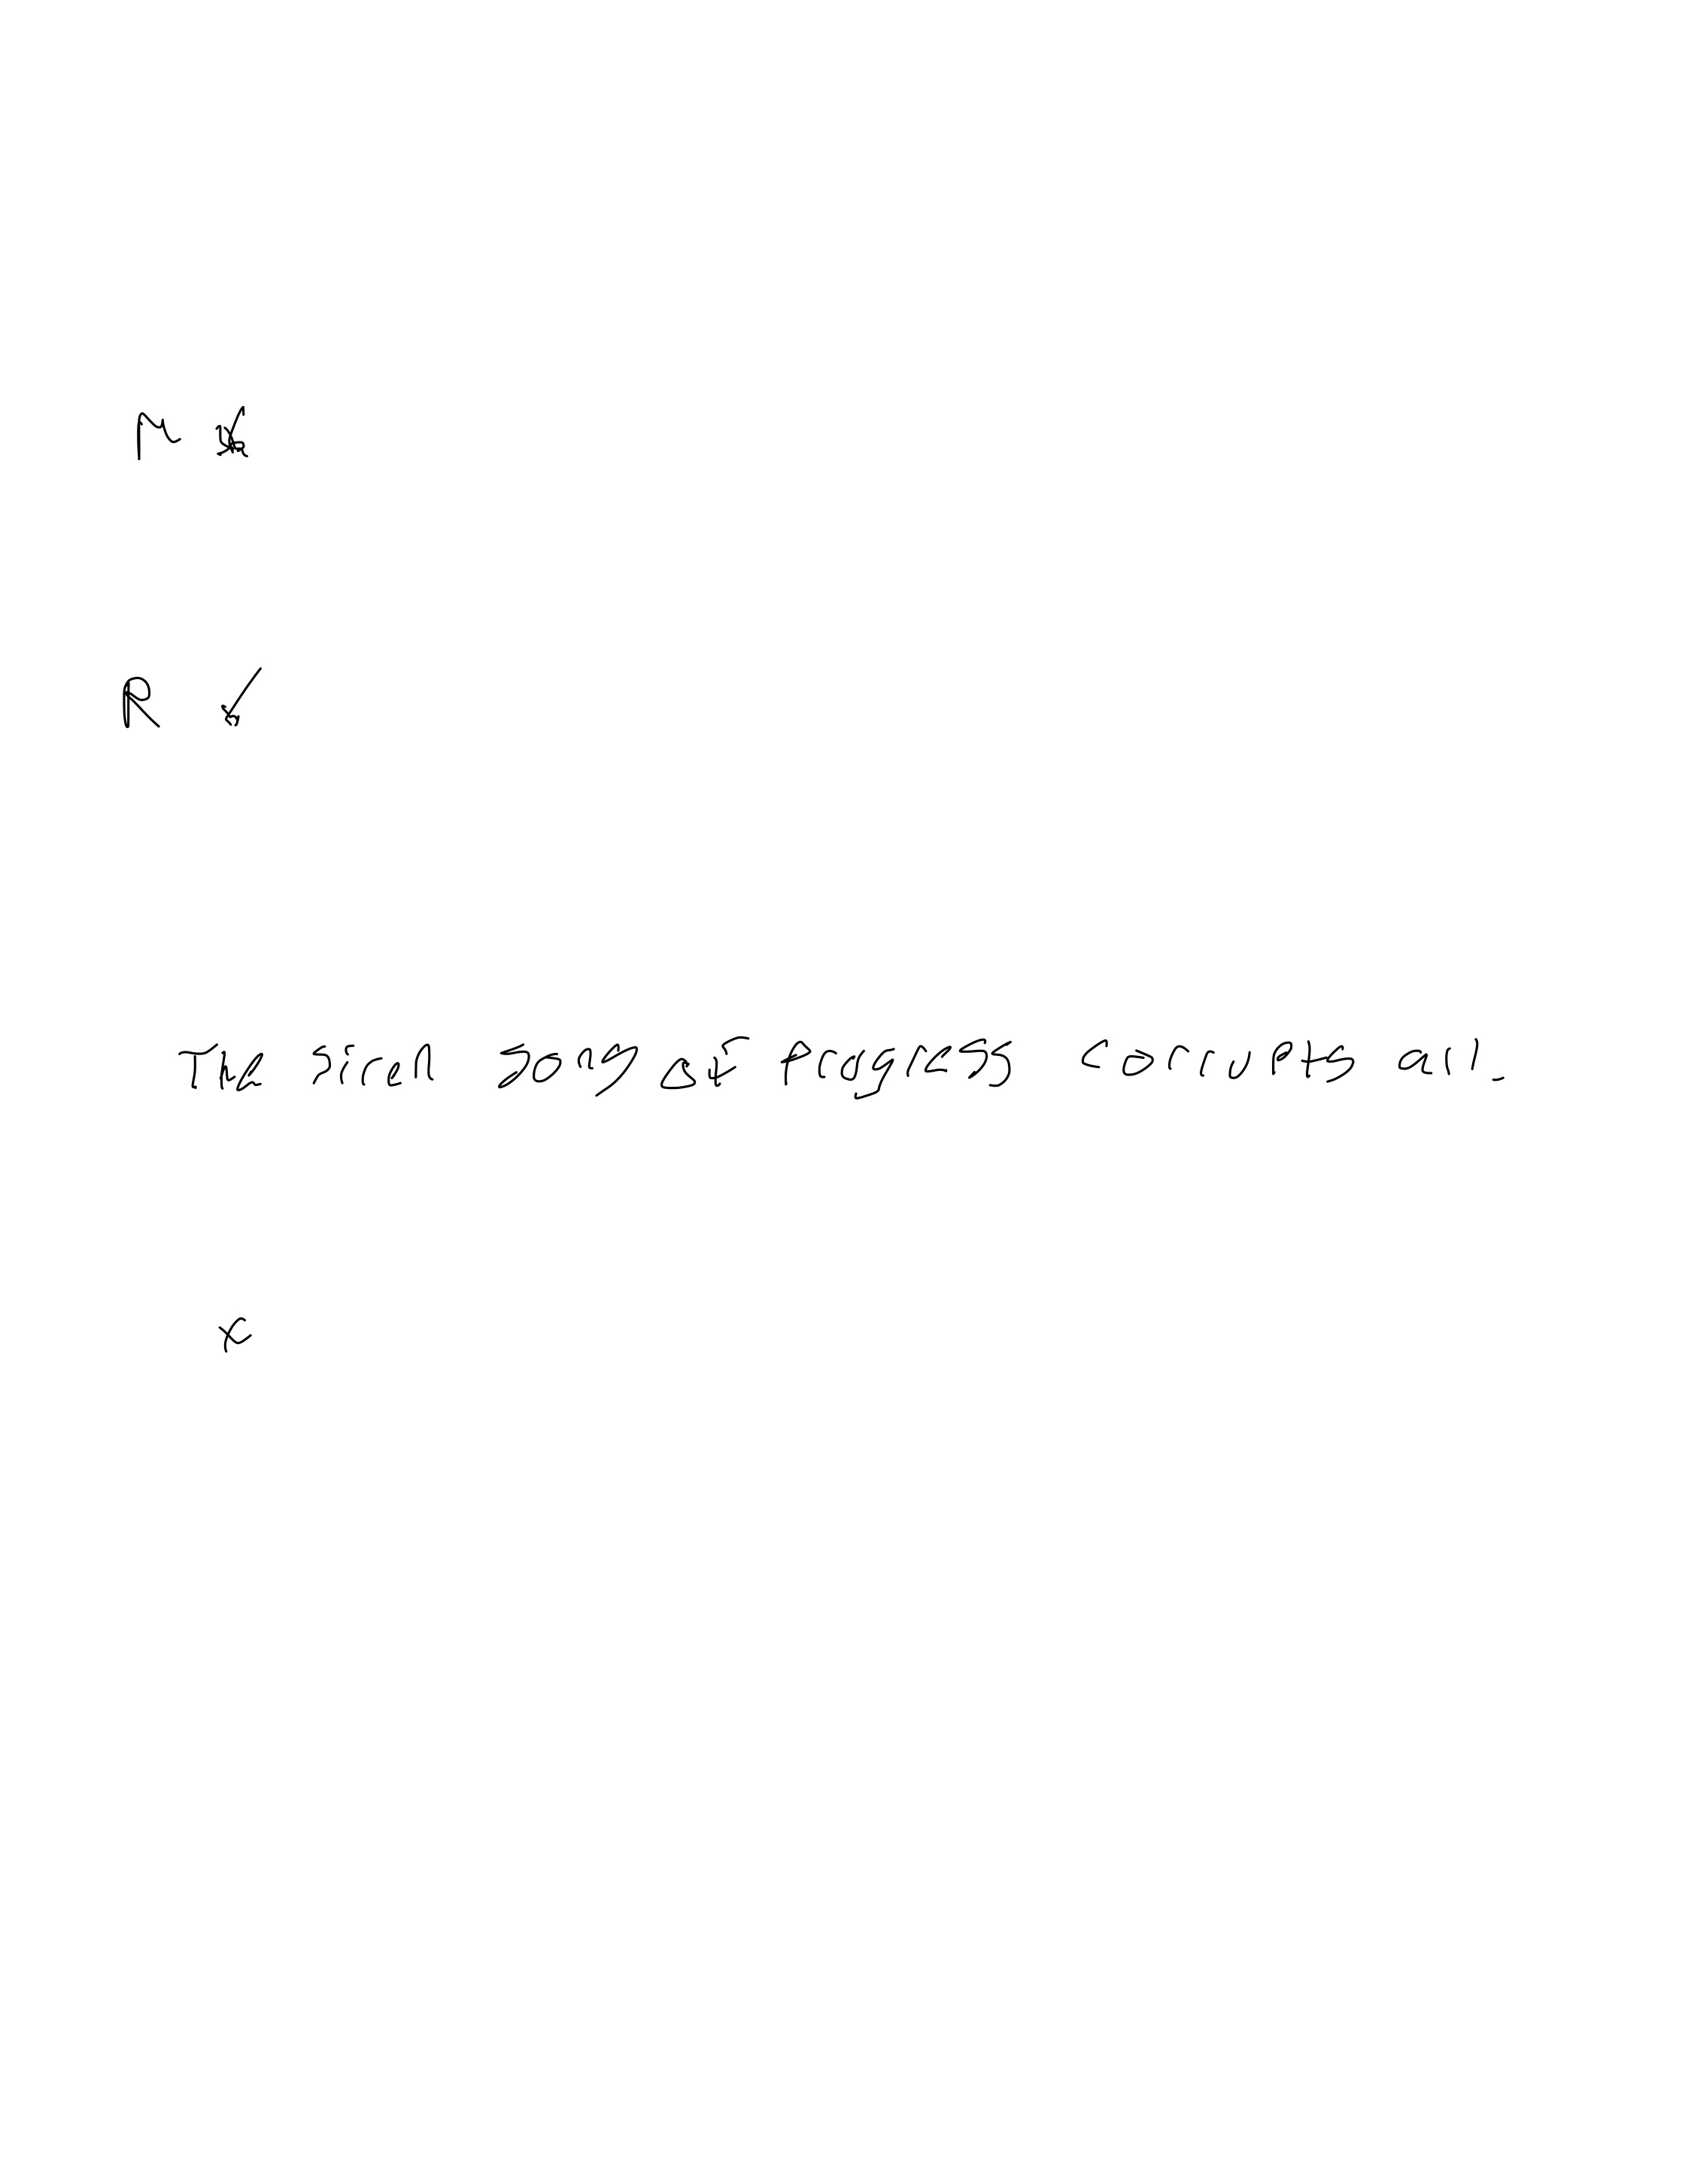 M
R ✓
The siren song of progress corrupts all.
x